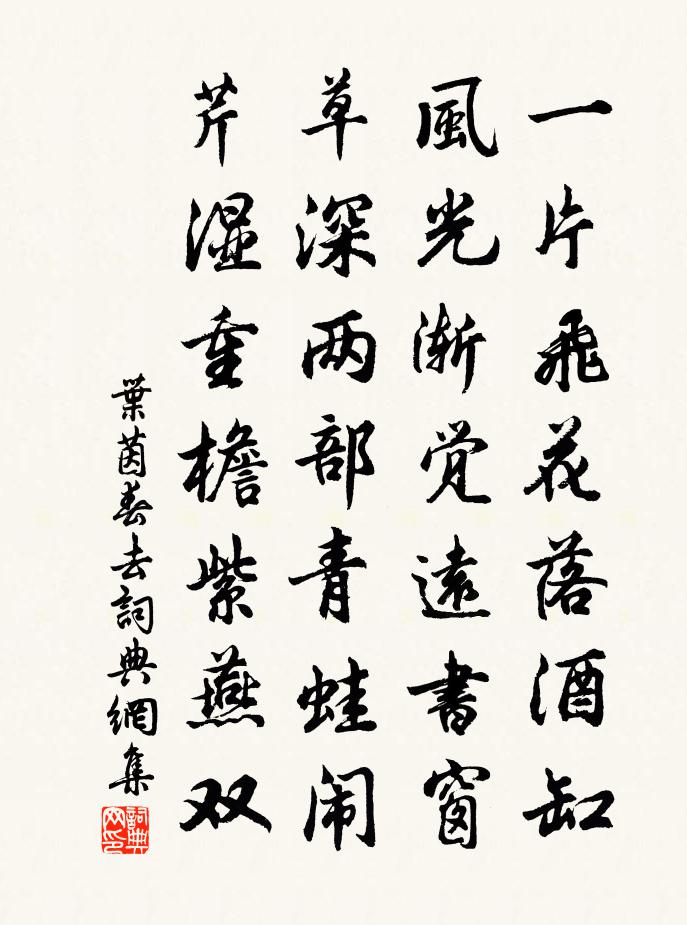 一片飛花落酒缸
風光漸觉遠書窗
草深两部青蛙闹
芹湿重檐紫燕双
葉茵春去詞典網集
詞典网印